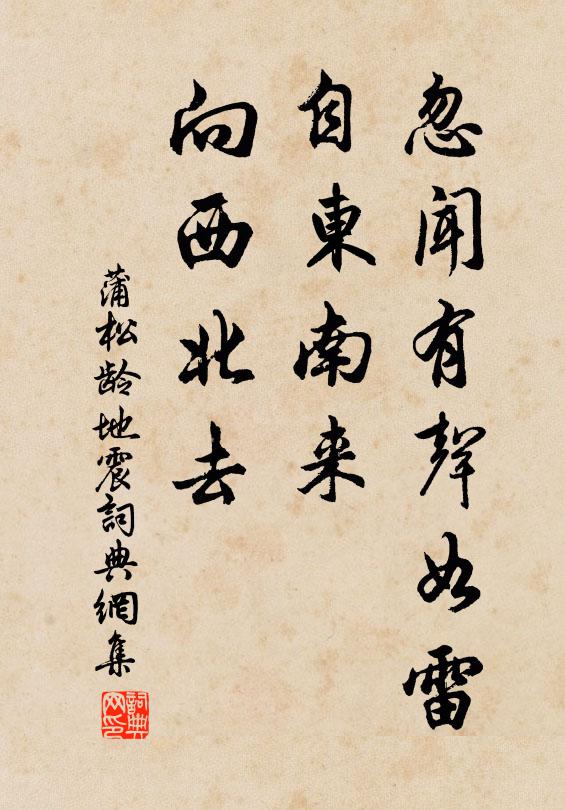 忽聞有聲如雷
自東南来
向西北去
蒲松龄地震詞典網集
詞典
网印